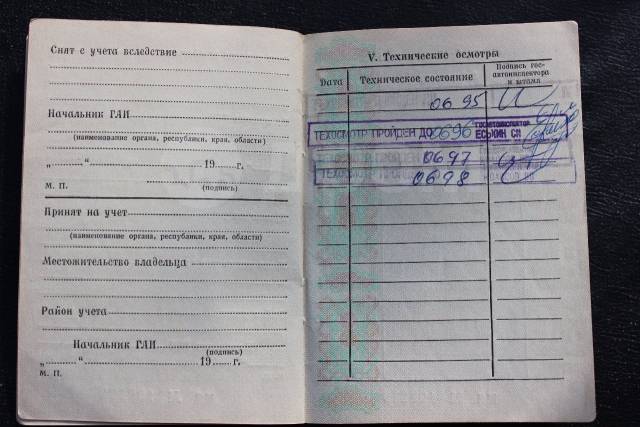 Снят с учета вследствие
Начальник ГАИ
(наименование органа, республики, края, области)
„ “ 19 г.
М. П. (подпись)
Принят на учет
(наименование органа, республики, края, области)
Местожительство владельца
Район учета
Начальник ГАИ
(подпись)
„ “ 19 г.
М. П.
V. Технические осмотры
Дата Техническое состояние Подпись гос-
автоинспектора
и штамп
06 95
ТЕХОСМОТР ПРОЙДЕН ДО 0696 ГОСАВТОИНСПЕКТОР
ЕСЬКИН СП
0697
ТЕХОСМОТР
0698